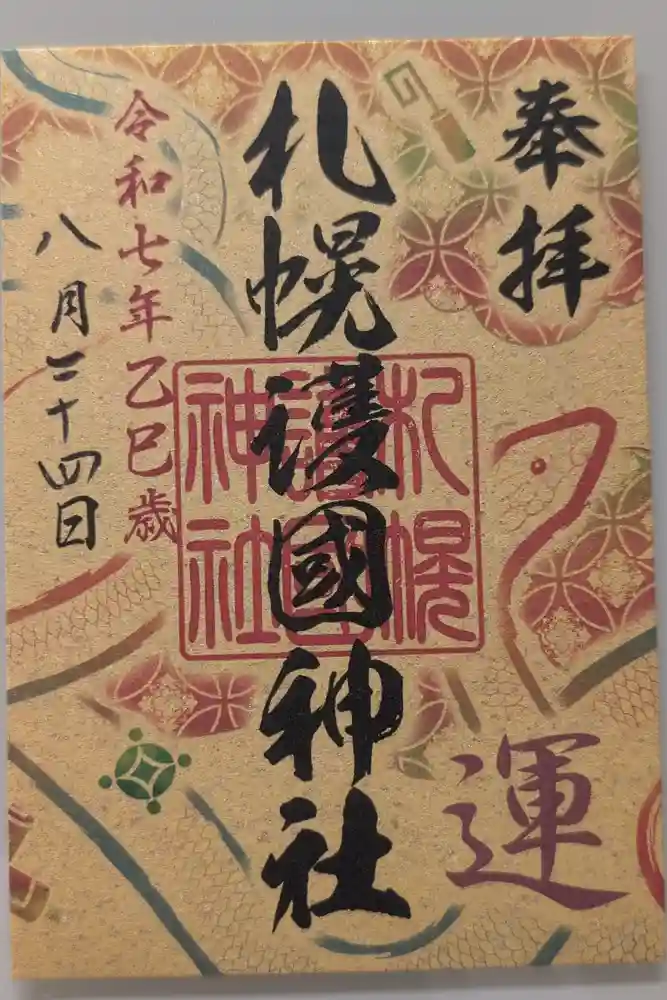 奉拝
運
札幌護國神社
札幌
護國
神社
令和七年乙巳歳
八月二十四日